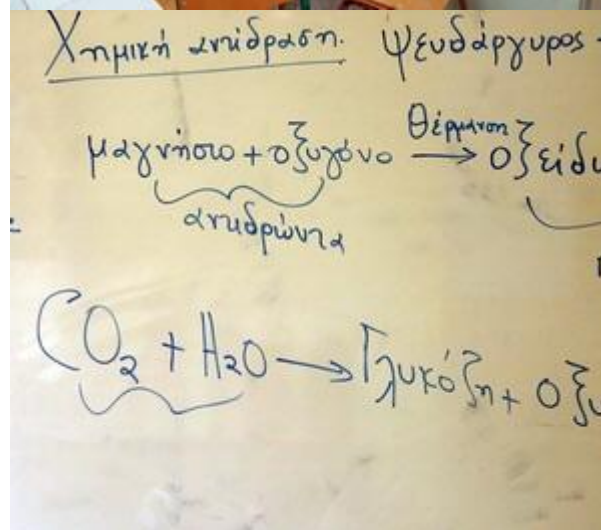 Χημική αντίδραση. Ψευδάργυρος
Θέρμανση
μαγνήσιο + οξυγόνο → Οξείδι
αντιδρώντα
CO₂ + H₂O → Γλυκόζη + Οξυ